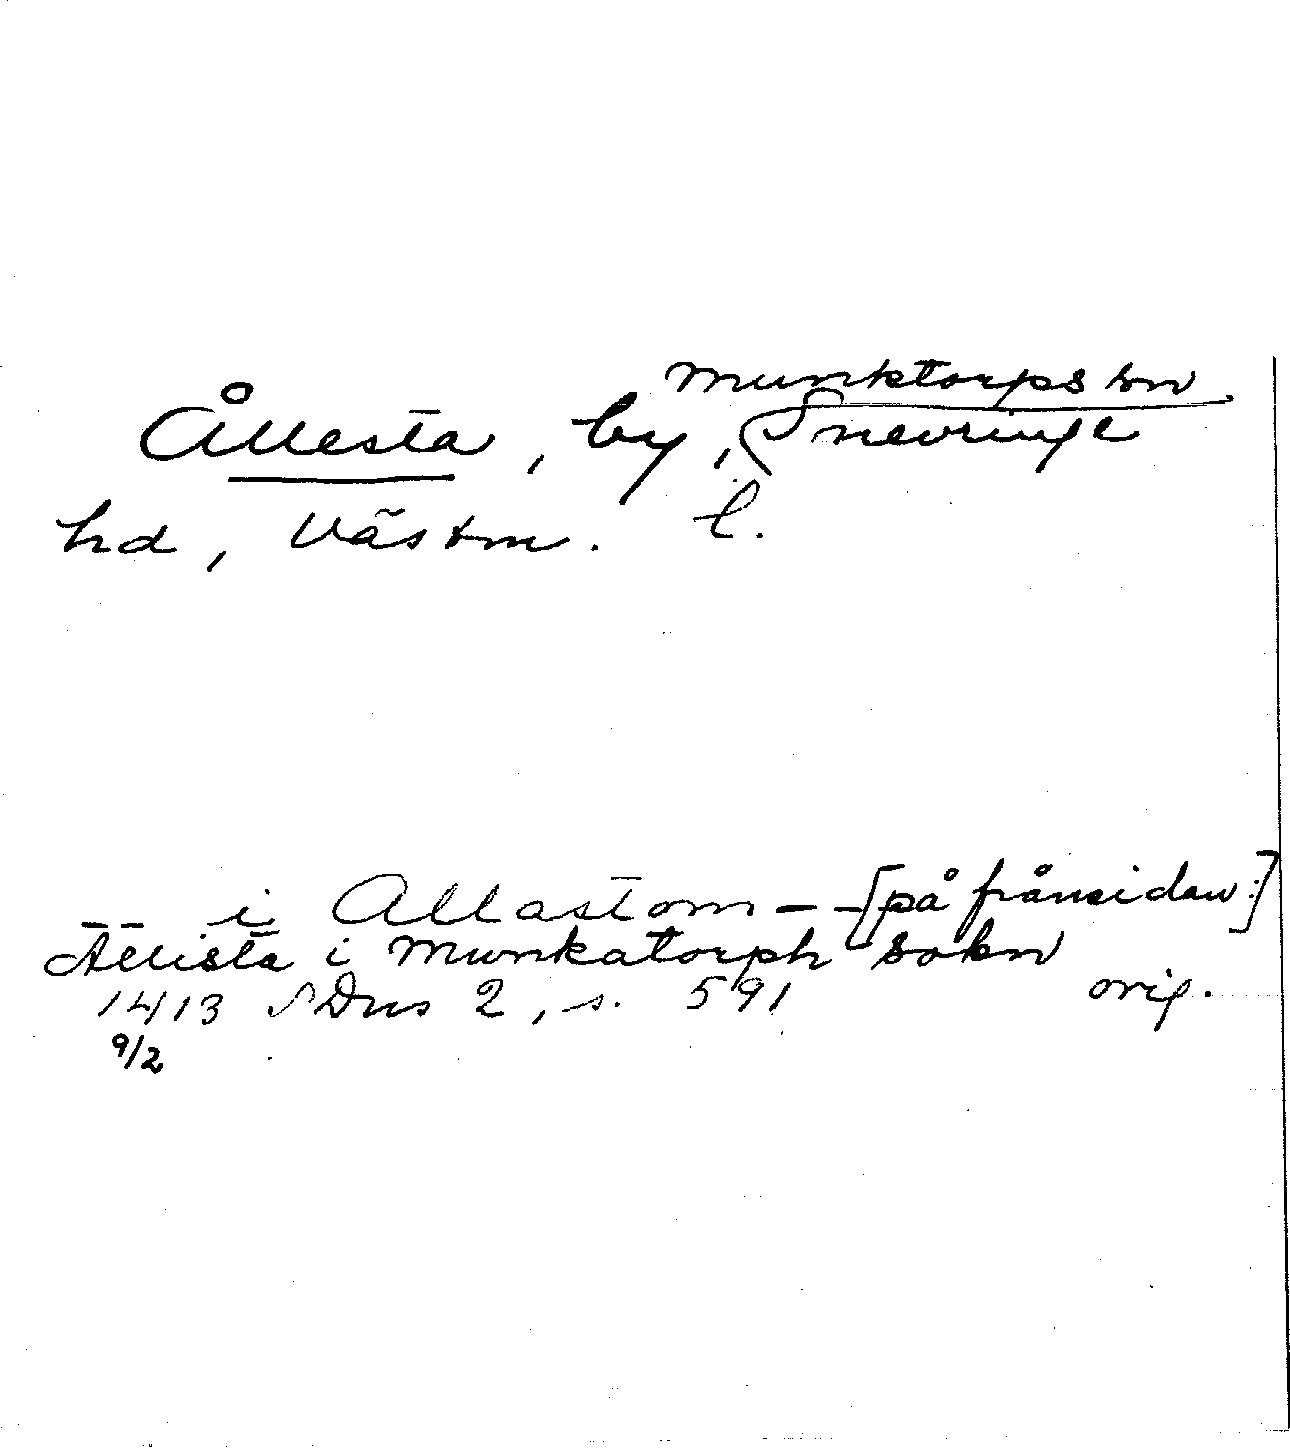 Munktorps sn
Ållesta, by, Snevringe
hd, Västm. l.
i Allastom – – [på frånsidan:]
Allista i Munkatorph sokn
1413 SDns 2, s. 591 orig.
9/2